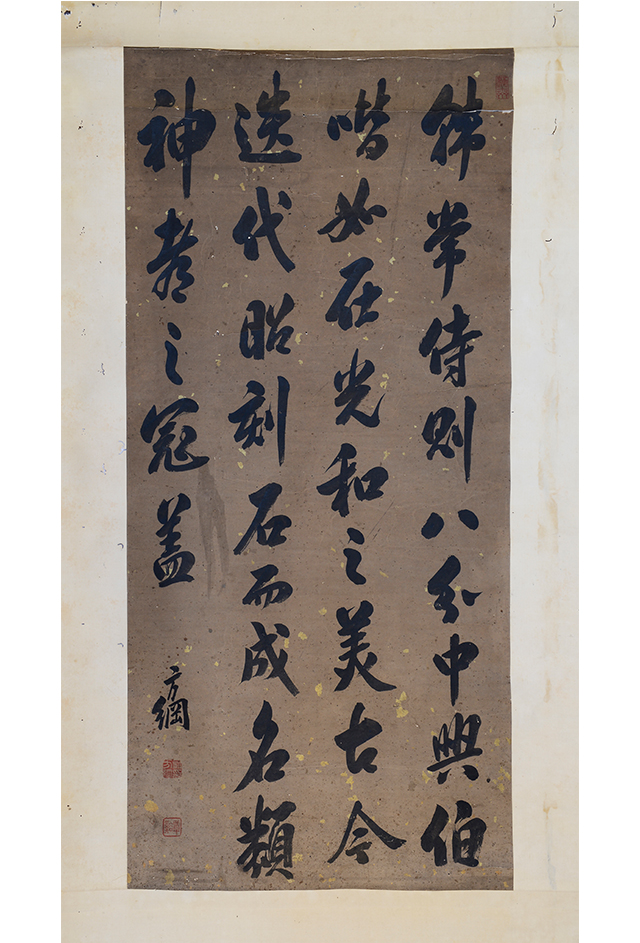 韓常侍則八分中興伯
喈如在光和之美古今
迭代昭刻石而成名類
神都之冠盖
方綱